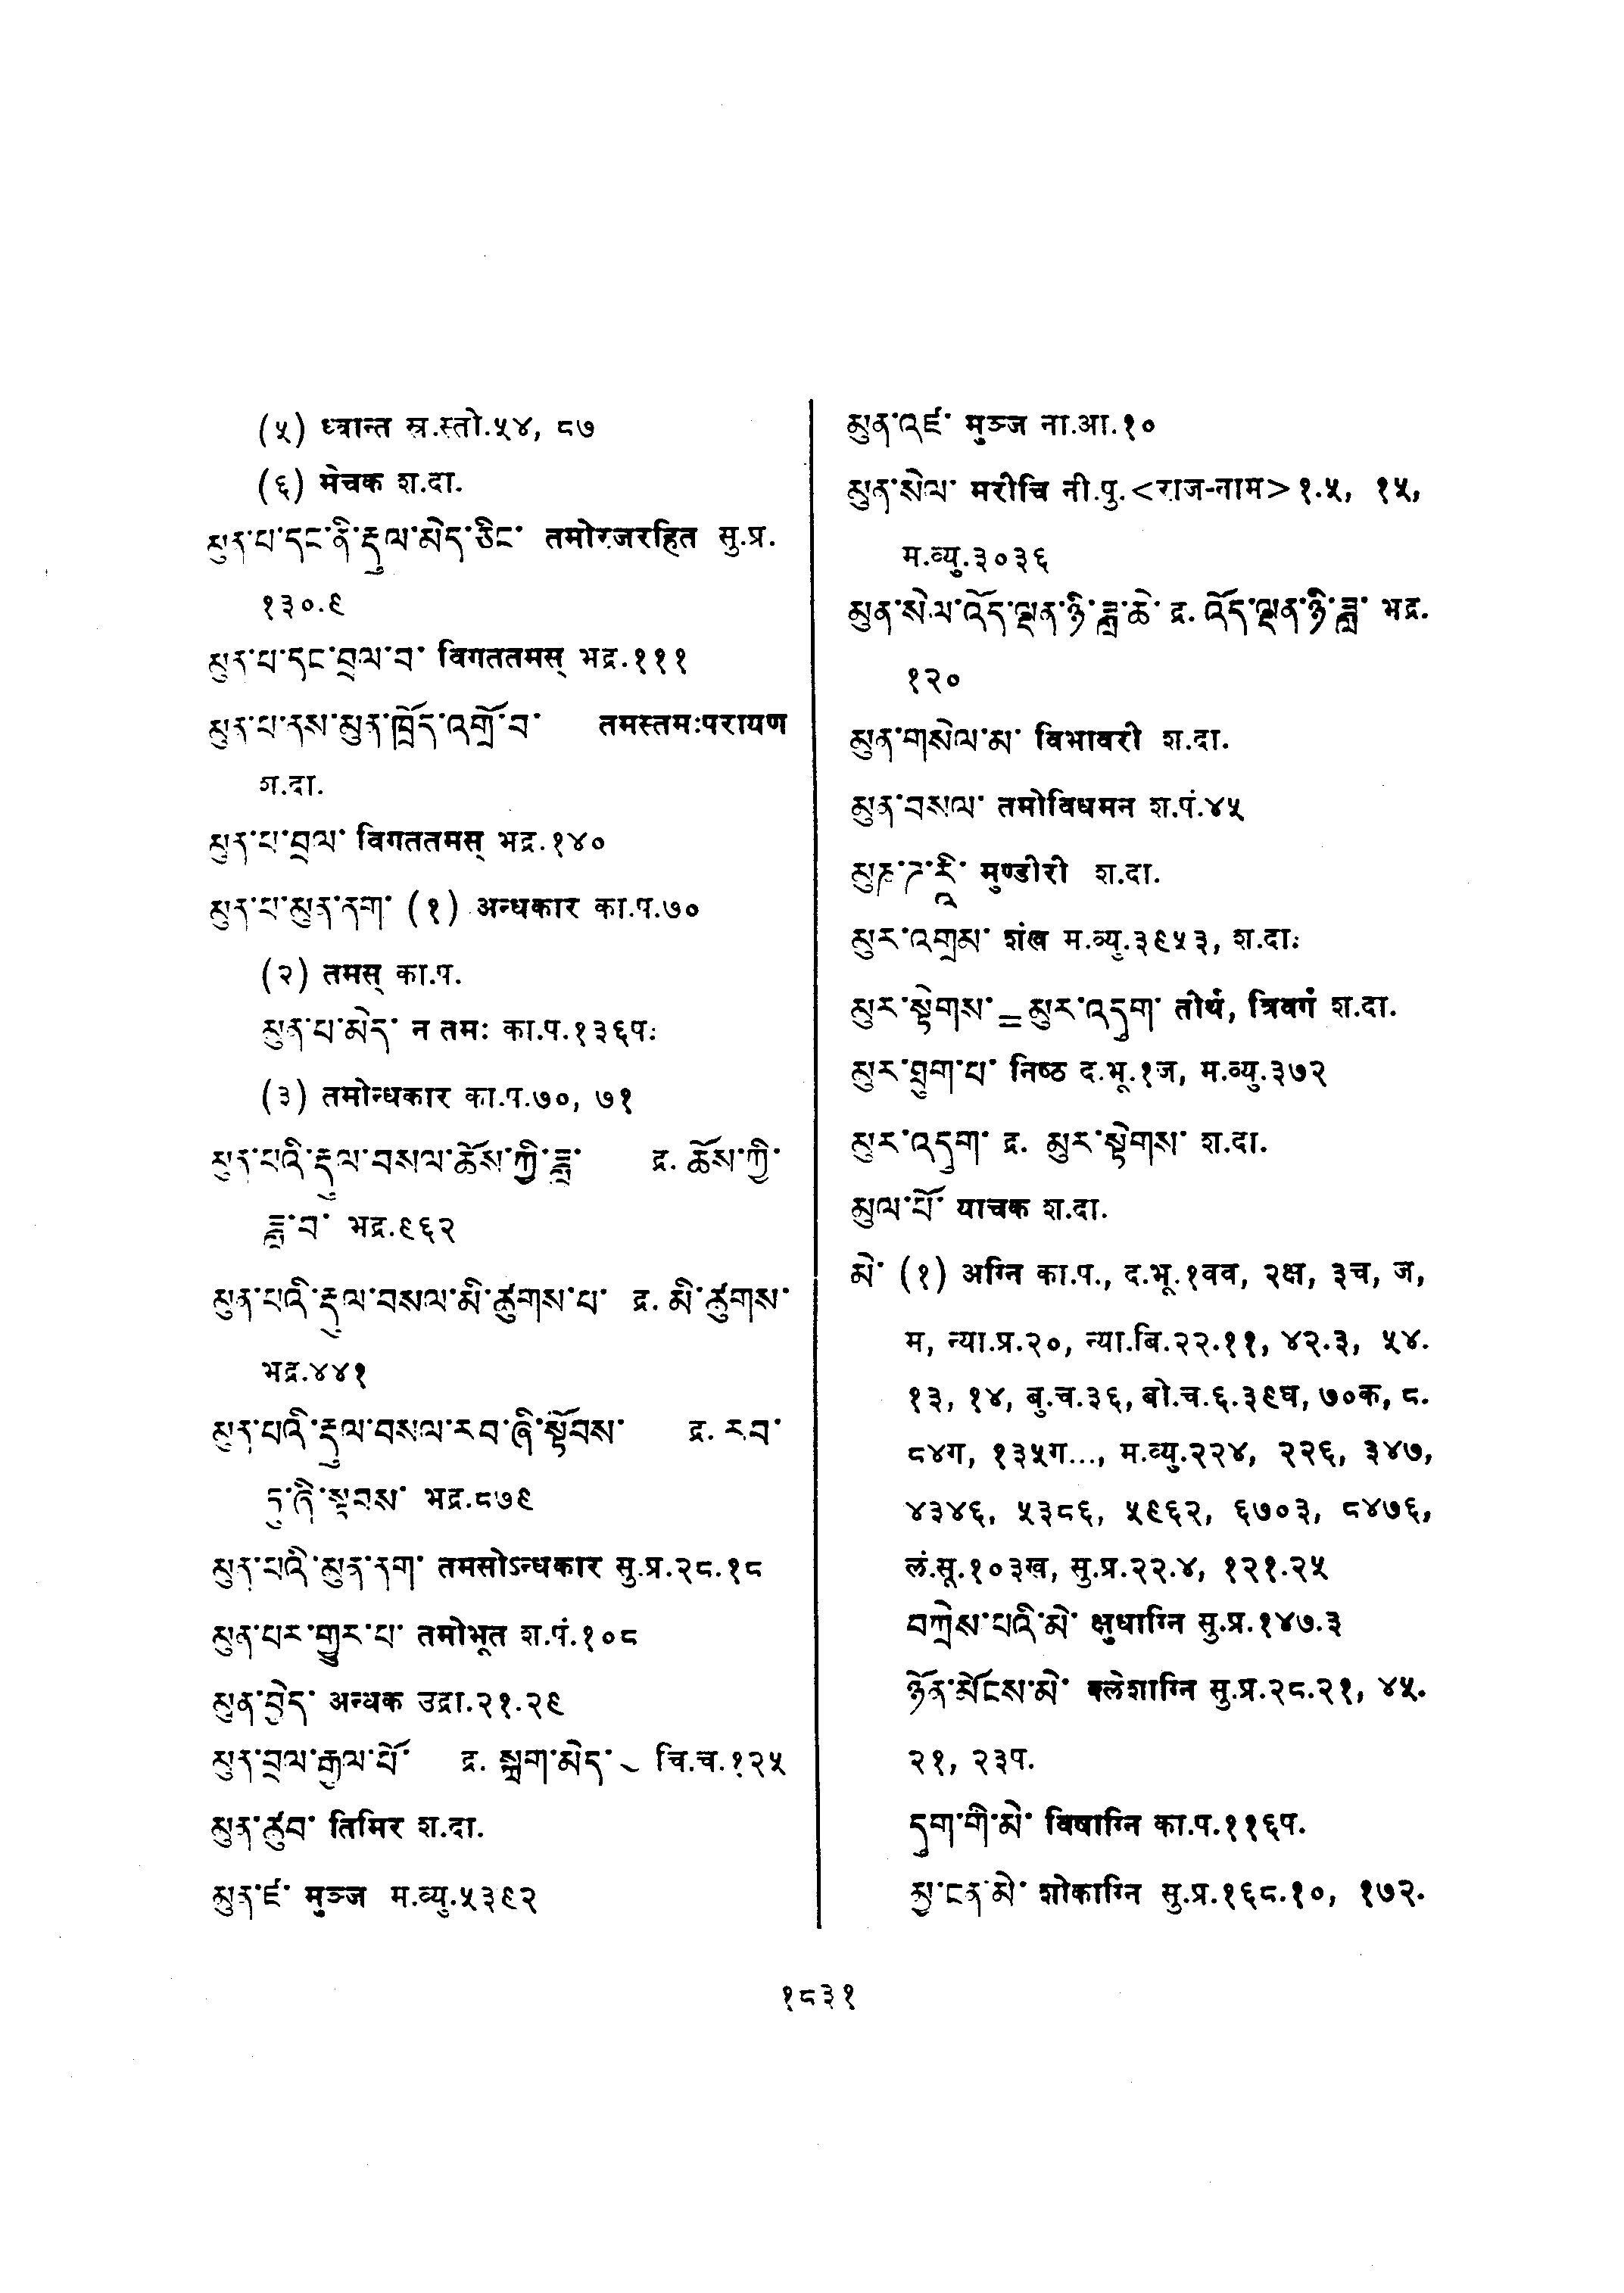 (५) ध्वान्त स्र.स्तो.५४, ८७
(६) मेचक श.दा.
མུན་པ་དང་ནི་རྡུལ་མེད་ཅིང་ तमोरजरहित सु.प्र.
१३०.९
མུན་པ་དང་བྲལ་བ་ विगततमस् भद्र.१११
མུན་པ་ནས་མུན་ཁྲོད་འགྲོ་བ་ तमस्तमःपरायण
श.दा.
མུན་པ་བྲལ་ विगततमस् भद्र.१४०
མུན་པ་མུན་ནག་ (१) अन्धकार का.प.७०
(२) तमस् का.प.
མུན་པ་མེད་ न तमः का.प.१३६प.
(३) तमोन्धकार का.प.७०, ७१
མུན་པའི་རྡུལ་བསལ་ཆོས་ཀྱི་ཟླ་ द्र. ཆོས་ཀྱི་
ཟླ་བ་ भद्र.९६२
མུན་པའི་རྡུལ་བསལ་མི་ཚུགས་པ་ द्र. མི་ཚུགས་
भद्र.४४१
མུན་པའི་རྡུལ་བསལ་རབ་ཞི་སྟོབས་ द्र. རབ་
ཏུ་ཞི་སྟབས་ भद्र.८७९
མུན་པའི་མུན་ནག་ तमसोऽन्धकार सु.प्र.२८.१८
མུན་པར་གྱུར་པ་ तमोभूत श.पं.१०८
མུན་བྱེད་ अन्धक उद्रा.२१.२९
མུན་བྲལ་རྒྱལ་པོ་ द्र. སྐྲག་མེད་ ~ चि.च.१२५
མུན་ཚུབ་ तिमिर श.दा.
མུན་ཛ་ मुञ्ज म.व्यु.५३९२
མུན་འཛ་ मुञ्ज ना.आ.१०
མུན་སེལ་ मरीचि नी.पु.<राज-नाम>१.५, १५,
म.व्यु.३०३६
མུན་སེལ་འོད་ལྡན་ཉི་ཟླ་ཆེ་ द्र. འོད་ལྡན་ཉི་ཟླ་ भद्र.
१२०
མུན་གསེལ་མ་ विभावरी श.दा.
མུན་བསལ་ तमोविधमन श.पं.४५
मुण्डीरी श.दा.
མུར་འགྲམ་ शंख म.व्यु.३९५३, श.दा.
མུར་སྟེགས་ = མུར་འདུག་ तीर्थ, त्रिवर्ग श.दा.
མུར་ཐུག་པ་ निष्ठ द.भू.१ज, म.व्यु.३७२
མུར་འདུག་ द्र. མུར་སྟེགས་ श.दा.
མུལ་པོ་ याचक श.दा.
མེ་ (१) अग्नि का.प., द.भू.१वव, २क्ष, ३च, ज,
म, न्या.प्र.२०, न्या.बि.२२.११, ४२.३, ५४.
१३, १४, बु.च.३६, बो.च.६.३९घ, ७०क, ८.
८४ग, १३५ग..., म.व्यु.२२४, २२६, ३४७,
४३४६, ५३८६, ५९६२, ६७०३, ८४७६,
लं.सू.१०३ख, सु.प्र.२२.४, १२१.२५
བཀྲེས་པའི་མེ་ क्षुधाग्नि सु.प्र.१४७.३
ཉོན་མོངས་མེ་ क्लेशाग्नि सु.प्र.२८.२१, ४५.
२१, २३प.
དུག་གི་མེ་ विषाग्नि का.प.११६प.
མྱ་ངན་མེ་ शोकाग्नि सु.प्र.१६८.१०, १७२.
१८३१